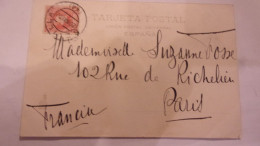 TARJETA POSTAL
Mademoiselle Suzanne Fosse
102 Rue de Richelieu
Paris
Francia